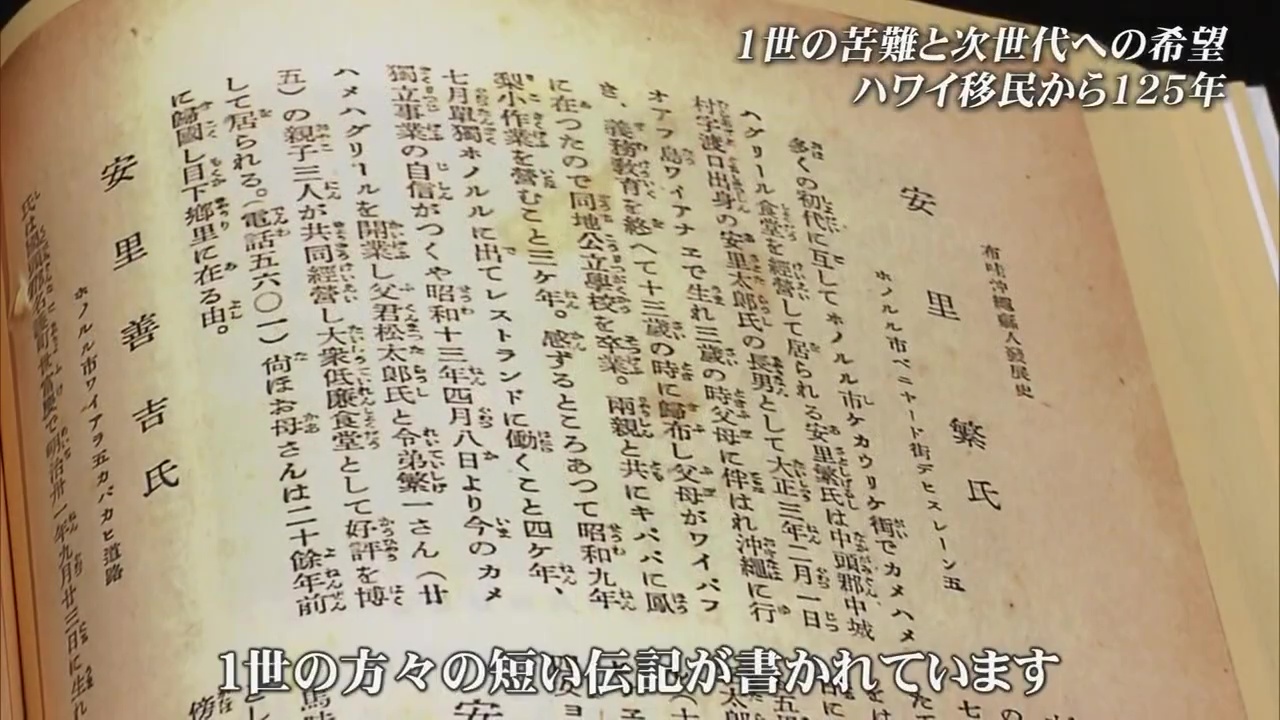 1世の苦難と次世代への希望
ハワイ移民から125年
布哇沖繩縣人發展史
安里繁氏
ホノルル市ベニヤード街デヒスレーン五
多くの初代に互してホノルル市ケカウリケ街でカメハメ
ハグリール食堂を經營して居られる安里繁氏は中頭郡中城
村字渡口出身の安里太郎氏の長男として大正三年二月一日
オアフ島ワイアナエで生れ三歲の時父母に伴はれ沖繩に行
き、義務敎育を終へて十三歲の時に歸布し父母がワイパフ
に在つたので同地公立學校を卒業。兩親と共にキパパに鳳
梨小作業を營むこと三ケ年。感ずるところあつて昭和九年
七月單獨ホノルルに出てレストランドに働くこと四ケ年、
獨立事業の自信がつくや昭和十三年四月八日より今のカメ
ハメハグリールを開業し父君松太郎氏と令弟繁一さん（廿
五）の親子三人が共同經營し大衆低廉食堂として好評を博
して居られる。（電話五六〇一）尙ほお母さんは二十餘年前
に歸國し目下鄕里に在る由。
安里善吉氏
ホノルル市ワイアラ五カパカヒ道路
明治卅一年九月廿三日に生れ
1世の方々の短い伝記が書かれています